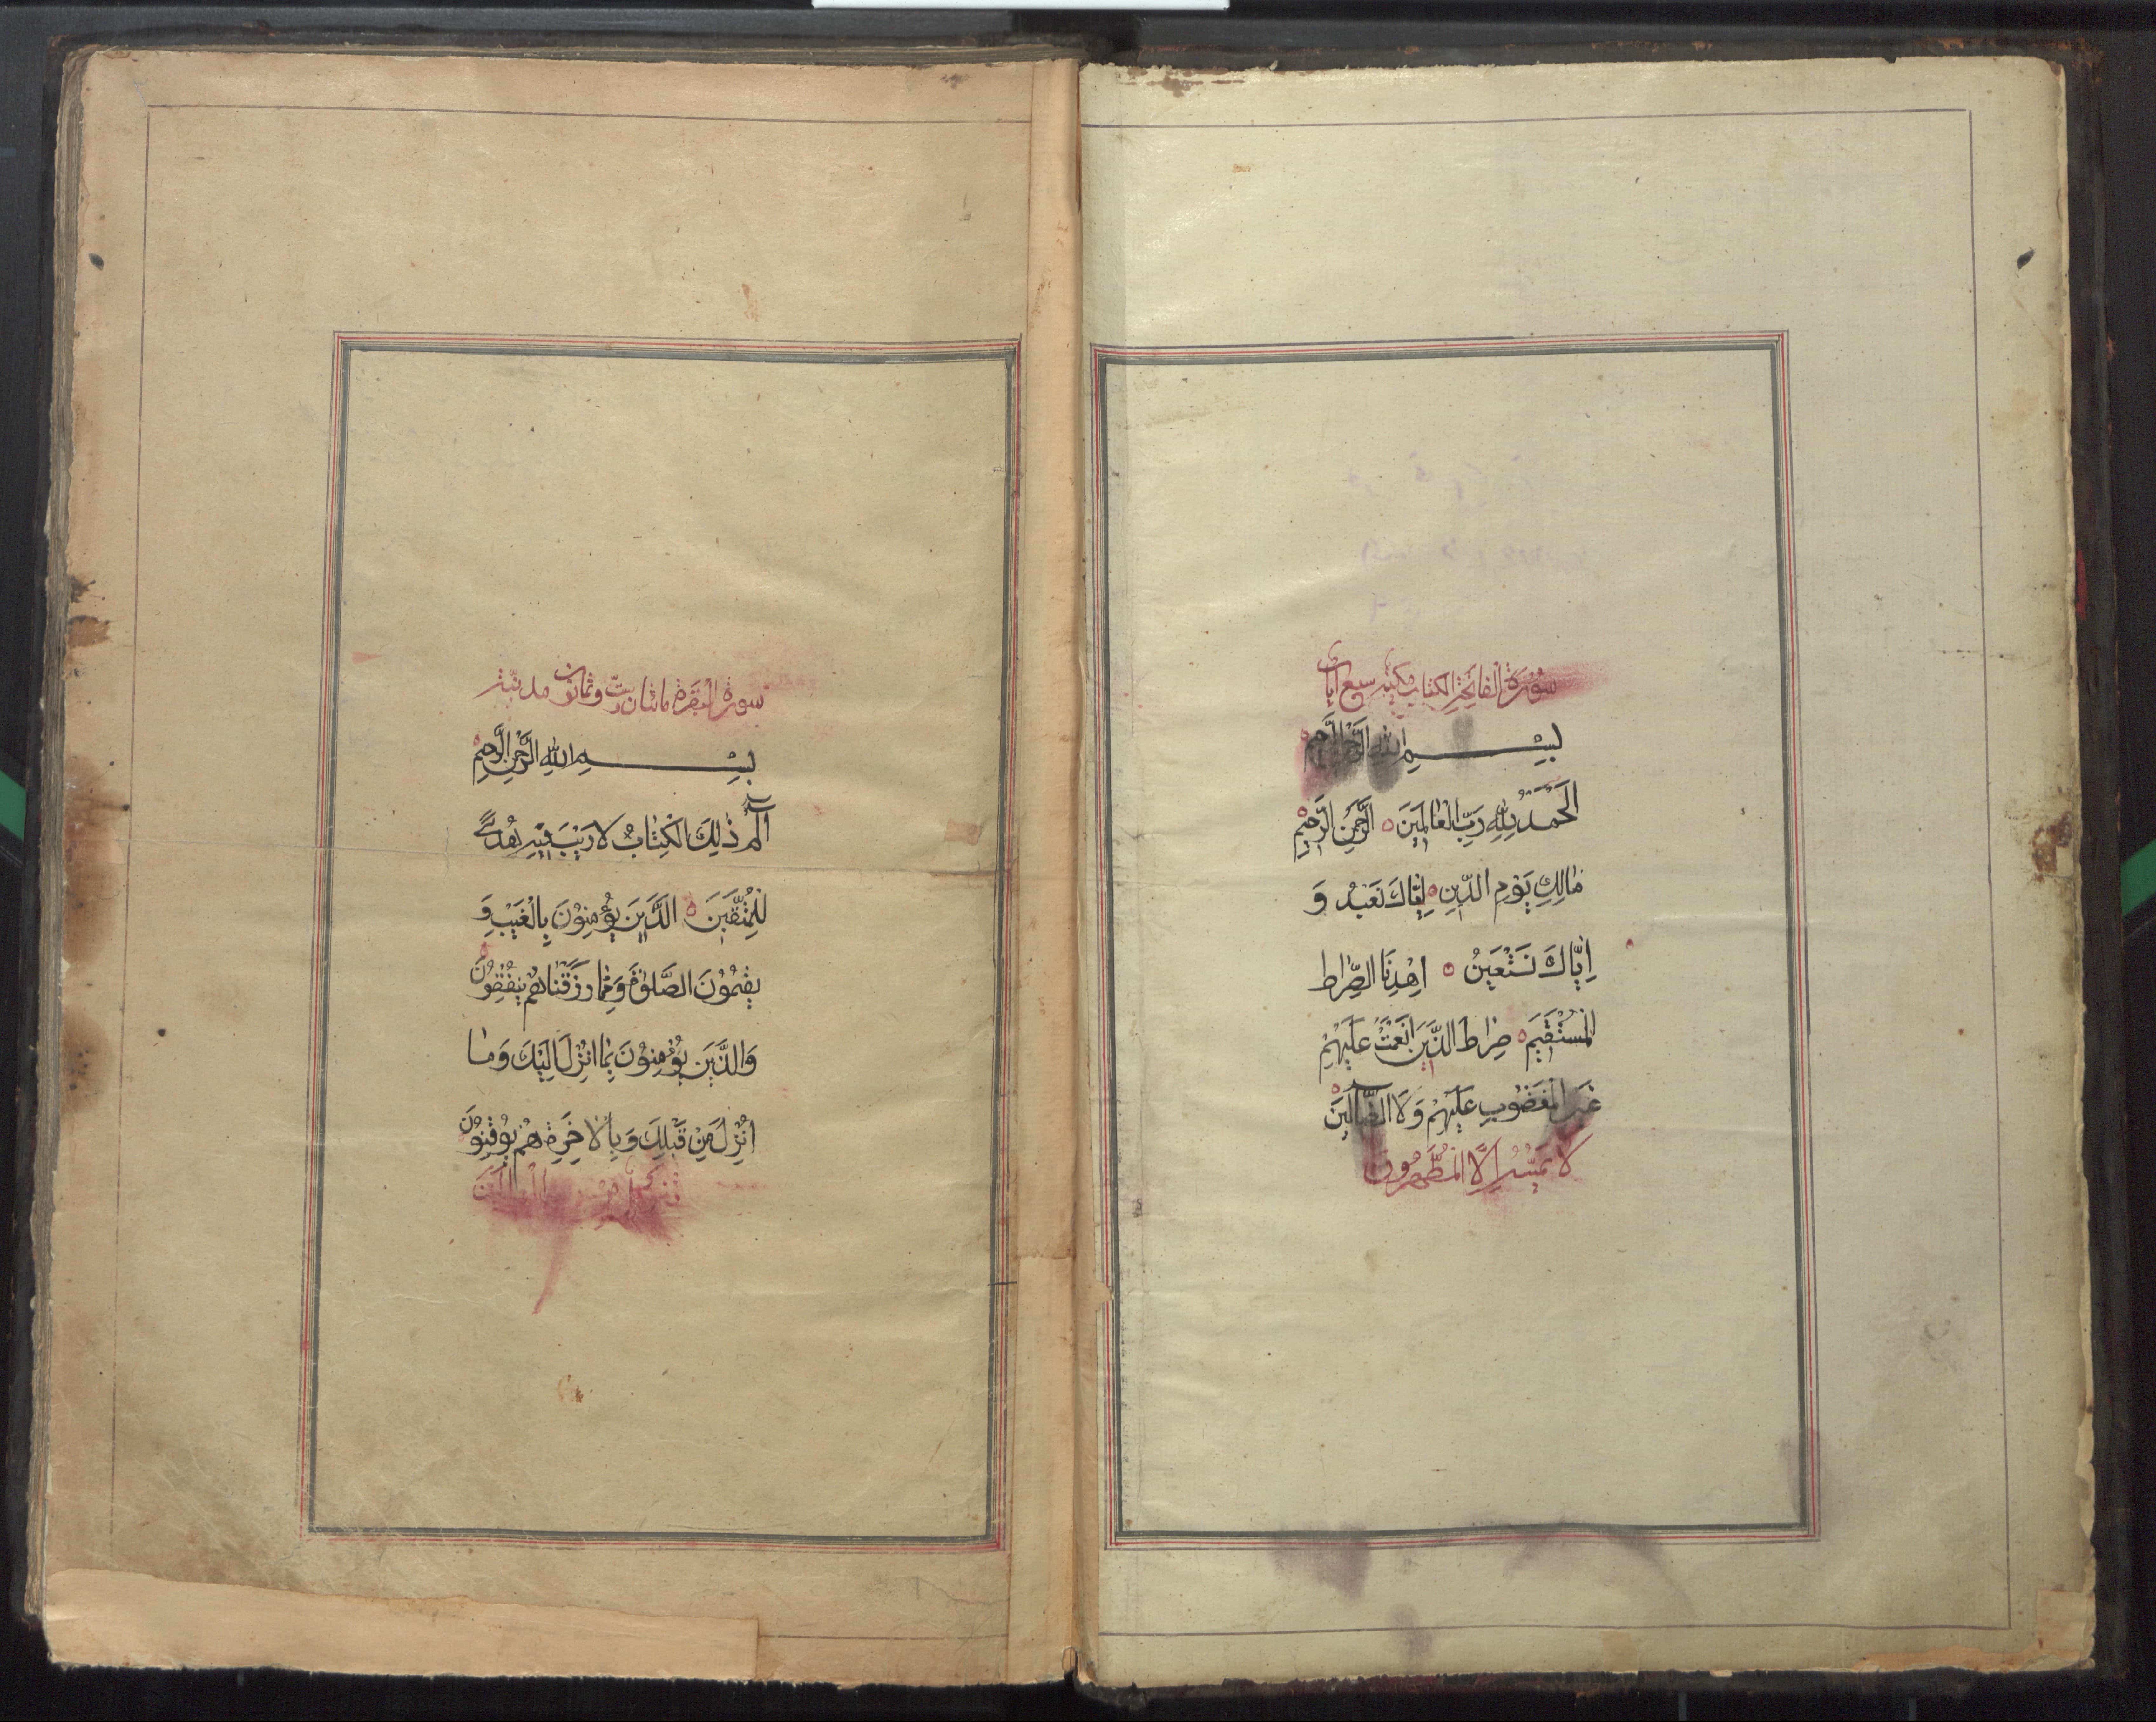 سُوْرَةُ الْفَاتِحَةِ الْكِتَابِ مَكِّيَّة سبع آيات
بِسْمِ اللهِ الرَّحْمٰنِ الرَّحِيْمِ
اَلْحَمْدُ لِلّٰهِ رَبِّ الْعَالَمِيْنَ ٥ الرَّحْمٰنِ الرَّحِيْمِ ٥
مَالِكِ يَوْمِ الدِّيْنِ ٥ اِيَّاكَ نَعْبُدُ وَ
اِيَّاكَ نَسْتَعِيْنُ ٥ اِهْدِنَا الصِّرَاطَ
الْمُسْتَقِيْمَ ٥ صِرَاطَ الَّذِيْنَ اَنْعَمْتَ عَلَيْهِمْ
غَيْرِ الْمَغْضُوْبِ عَلَيْهِمْ وَلَا الضَّآلِّيْنَ ٥
لَا يَمَسُّهُ اِلَّا الْمُطَهَّرُوْنَ
سورة البقرة مائتان ست وثمانون مدنية
بِسْمِ اللهِ الرَّحْمٰنِ الرَّحِيْمِ ٥
الٓمٓ ذٰلِكَ الْكِتَابُ لَا رَيْبَ فِيْهِ هُدًى
لِلْمُتَّقِيْنَ ٥ الَّذِيْنَ يُؤْمِنُوْنَ بِالْغَيْبِ وَ
يُقِيْمُوْنَ الصَّلٰوةَ وَمِمَّا رَزَقْنَاهُمْ يُنْفِقُوْنَ ٥
وَالَّذِيْنَ يُؤْمِنُوْنَ بِمَا اُنْزِلَ اِلَيْكَ وَمَا
اُنْزِلَ مِنْ قَبْلِكَ وَبِالْاٰخِرَةِ هُمْ يُوْقِنُوْنَ
الْعَالَمِيْنَ